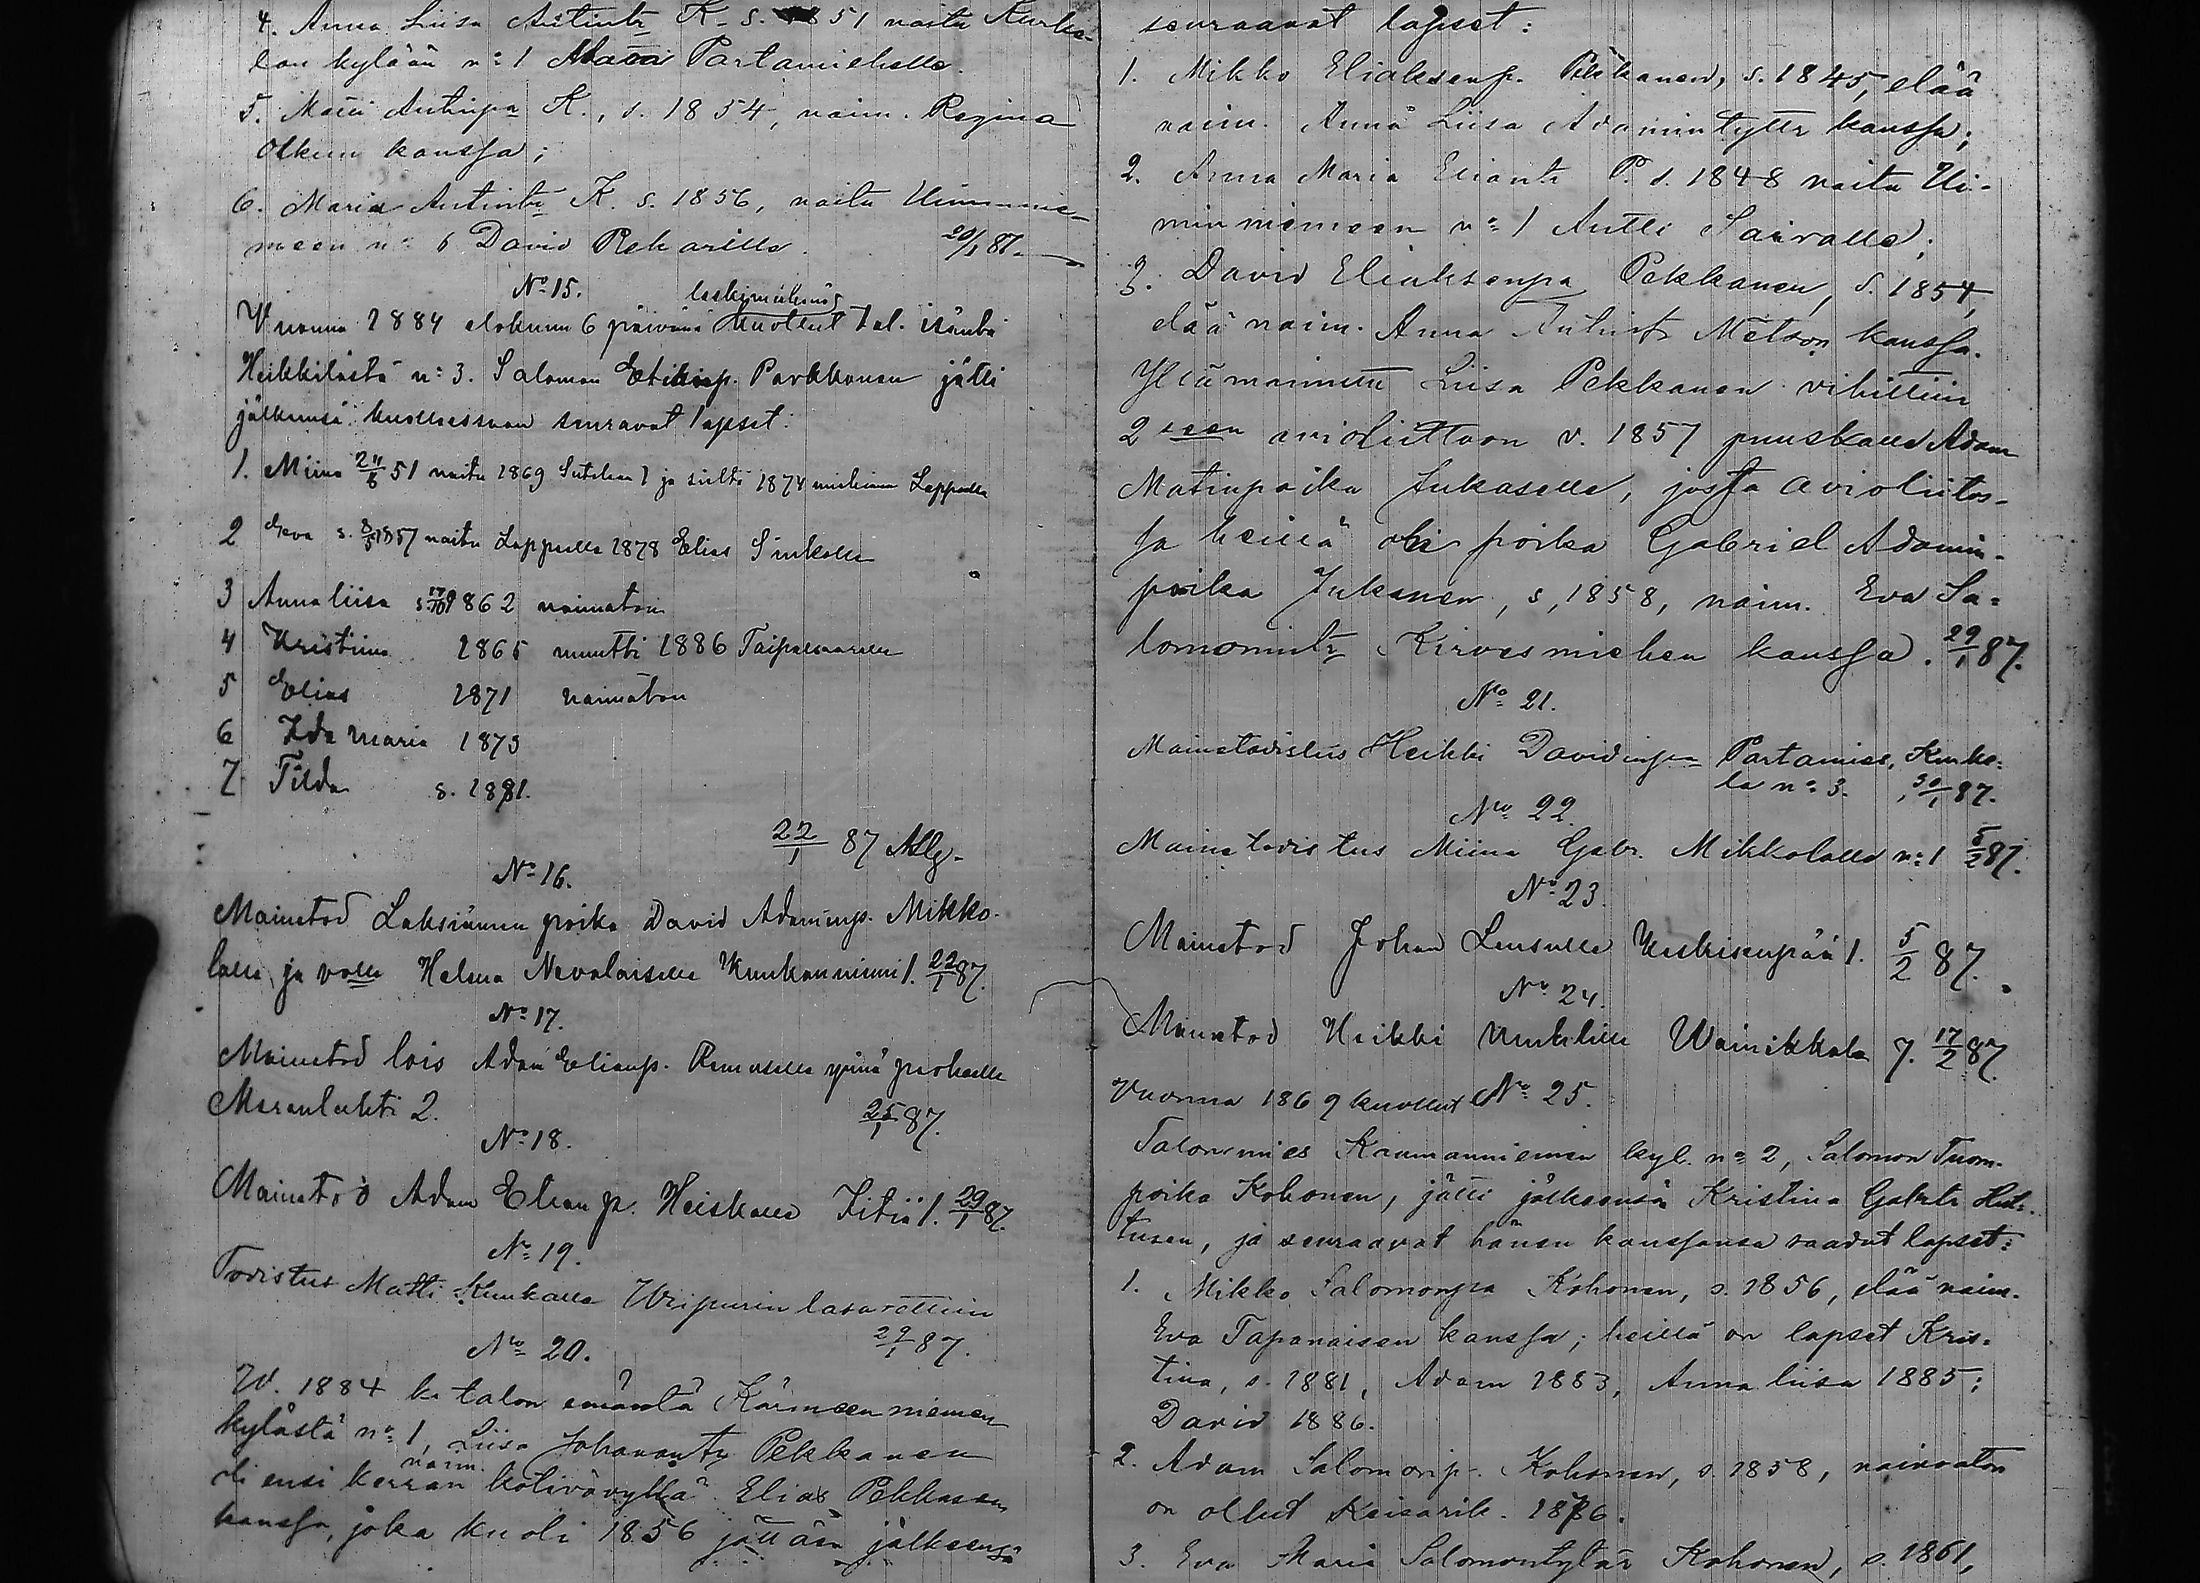 4. Anna Liisa Antintr K. s. 1851 naitu Kurke-
lan kylään n:o 1 Matti Partamiehelle.
5. Matti Antinpa K., s. 1854, naim. Regina
Olkun kanssa;
6. Maria Antintr K. s. 1856, naitu Uiminnie-
meen n:o 6 David Rekarille. 20/1 87.
No 15.
leskimiehenä
Vuonna 1884 elokuun 6 päivänä kuollut tal. isäntä
Heikkilästä n:o 3. Salomon Parkkonen jätti
jälkeensä kuollessaan seuravat lapset:
1. Miina 51 naitu 1869 1 ja sieltä 1874 Lappeella
2 Eeva s. 1857 naitu Lappeella 1878 Elias Sinkolle
3 Annaliisa s 17/10 1862 naimaton
4 Kristiina 1865 muutti 1886 Taipalsaarelle
5 Elias 1871 naimaton
6 Ida Maria 1875
7 Tilda s. 1881.
22/1 87
No 16.
Mainetod poika David Adaminp. Mikko-
lalle ja Helena Nevalaiselle Kunkanniemi 1. 22/1 87.
No 17.
Mainetod lois Adam Elianp.
2. 25/1 87.
No 18.
Mainetod Adam Elian p. Heiskalle Jitiä 1. 29/1 87.
No 19.
Todistus Matti Kunkalle Wiipurin lasarettiin
29/1 87.
No 20.
W. 1884 k. talon emäntä Kärmeenniemen
kylästä n:o 1, Liisa Johanantr Pekkanen
naim.
oli ensi kerran kotivävyllä Elias Pekkasen
kanssa, joka kuoli 1856 jättäen jälkeensä
seuraavat lapset:
1. Mikko Eliaksenp. Pekkanen, s. 1845, elää
naim. Anna Liisa Adamintyttr kanssa;
2. Anna Maria Eliantr P. s. 1848 naitu Ui-
minniemeen n:o 1 Antti Sairalle;
3. David Eliaksenpa Pekkanen, s. 1854,
elää naim. Anna Antintr Metson kanssa.
Yllämainittu Liisa Pekkanen vihittiin
2seen avioliittoon v. 1857 puuskalle Adam
Matinpoika Jukaselle, josta avioliitos-
sa heillä oli poika Gabriel Adamin-
poika Jukanen, s. 1858, naim. Eva Sa-
lomonintr Kirvesmiehen kanssa. 29/1 87.
No 21.
Mainetodistus Heikki Davidinpa Partamies, Kurke-
la n:o 3. 30/1 87.
No 22.
Mainetodistus Miina Gabr. Mikkolalle n:o 1 5/2 87.
No 23.
Mainetod Johan Lensulle Keskisenpää 1. 5/2 87.
No 24.
Mainetod Heikki Wainikkala 7. 17/2 87.
Vuonna 1869 kuollut No 25.
Talonmies Kaumanniemen kyl. n:o 2, Salomon Tuom.
poika Kohonen, jätti jälkeensä Kristina Gabrtr Hut-
tusen, ja seuraavat hänen kanssansa saadut lapset:
1. Mikko Salomonpa Kohonen, s. 1856, elää naim.
Eva Tapanaisen kanssa; heillä on lapset Kris-
tina, s. 1881, Adam 1883, Anna liisa 1885;
David 1886.
2. Adam Salomonp. Kohonen, s. 1858, naimaton
on ollut Keisarik. 1886.
3. Eva Maria Salomontytär Kohonen, s. 1861,